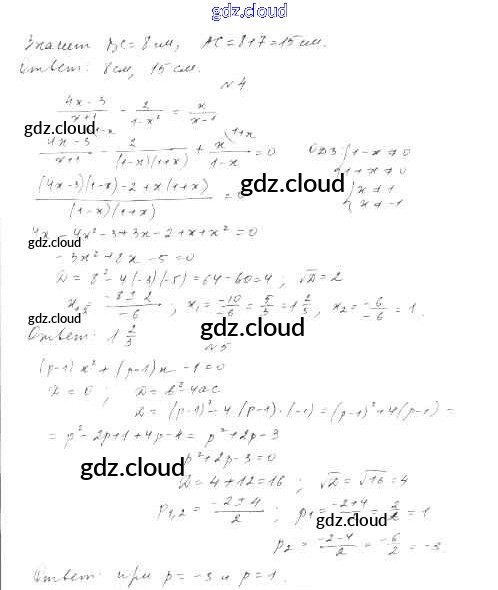 gdz.cloud
Значит BC = 8 см, AC = 8+7 = 15 см.
Ответ: 8 см, 15 см.
N 4
(4x-3)/(x+1) - 2/(1-x²) = x/(x-1)
gdz.cloud
(4x-3)^(1-x)/(x+1) - 2/((1-x)(1+x)) + x^(1+x)/(1-x) = 0 ОДЗ: { 1-x ≠ 0
gdz.cloud
1+x ≠ 0
((4x-3)(1-x) - 2 + x(1+x))/((1-x)(1+x)) = 0 { x ≠ 1
gdz.cloud
x ≠ -1
gdz.cloud
4x - 4x² - 3 + 3x - 2 + x + x² = 0
-3x² + 8x - 5 = 0
D = 8² - 4(-3)(-5) = 64 - 60 = 4 ; √D = 2
x₁,₂ = (-8±2)/(-6) ; x₁ = -10/-6 = 5/3 = 1 2/3 , x₂ = -6/-6 = 1.
gdz.cloud
Ответ: 1 2/3
gdz.cloud
N 5
(p-1)x² + (p-1)x - 1 = 0
D = 0 ; D = b² - 4ac
D = (p-1)² - 4·(p-1)·(-1) = (p-1)² + 4(p-1) =
= p² - 2p + 1 + 4p - 4 = p² + 2p - 3
p² + 2p - 3 = 0
gdz.cloud
D = 4 + 12 = 16 ; √D = √16 = 4
p₁,₂ = (-2±4)/2 ; p₁ = (-2+4)/2 = 2/2 = 1
gdz.cloud
p₂ = (-2-4)/2 = -6/2 = -3.
Ответ: при p = -3 и p = 1.
gdz.cloud